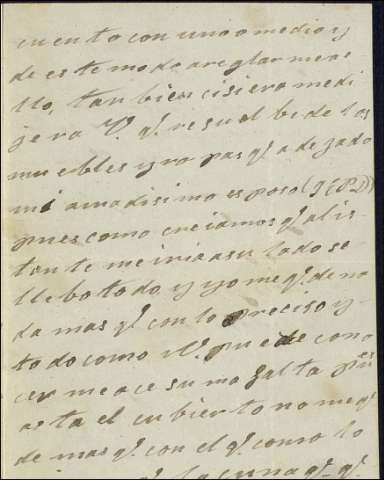 cuento con uno o medio y
de este modo areglarme a e
llo, tan bien cisiera me di
jera V. q.e resul be de los
muebles y ro pas q.e a dejado
mi amadisimo esposo (J E P D)
pues como creiamos q.e al is
tante me iria a su lado se
llebo todo, y yo me q.e de na
da mas q.e con lo preciso y
todo como V. puede cono
cer me ace suma falta pues
asta el cubierto no me q.e
de mas q.e con el q.e como lo
la cuna q.e q.e